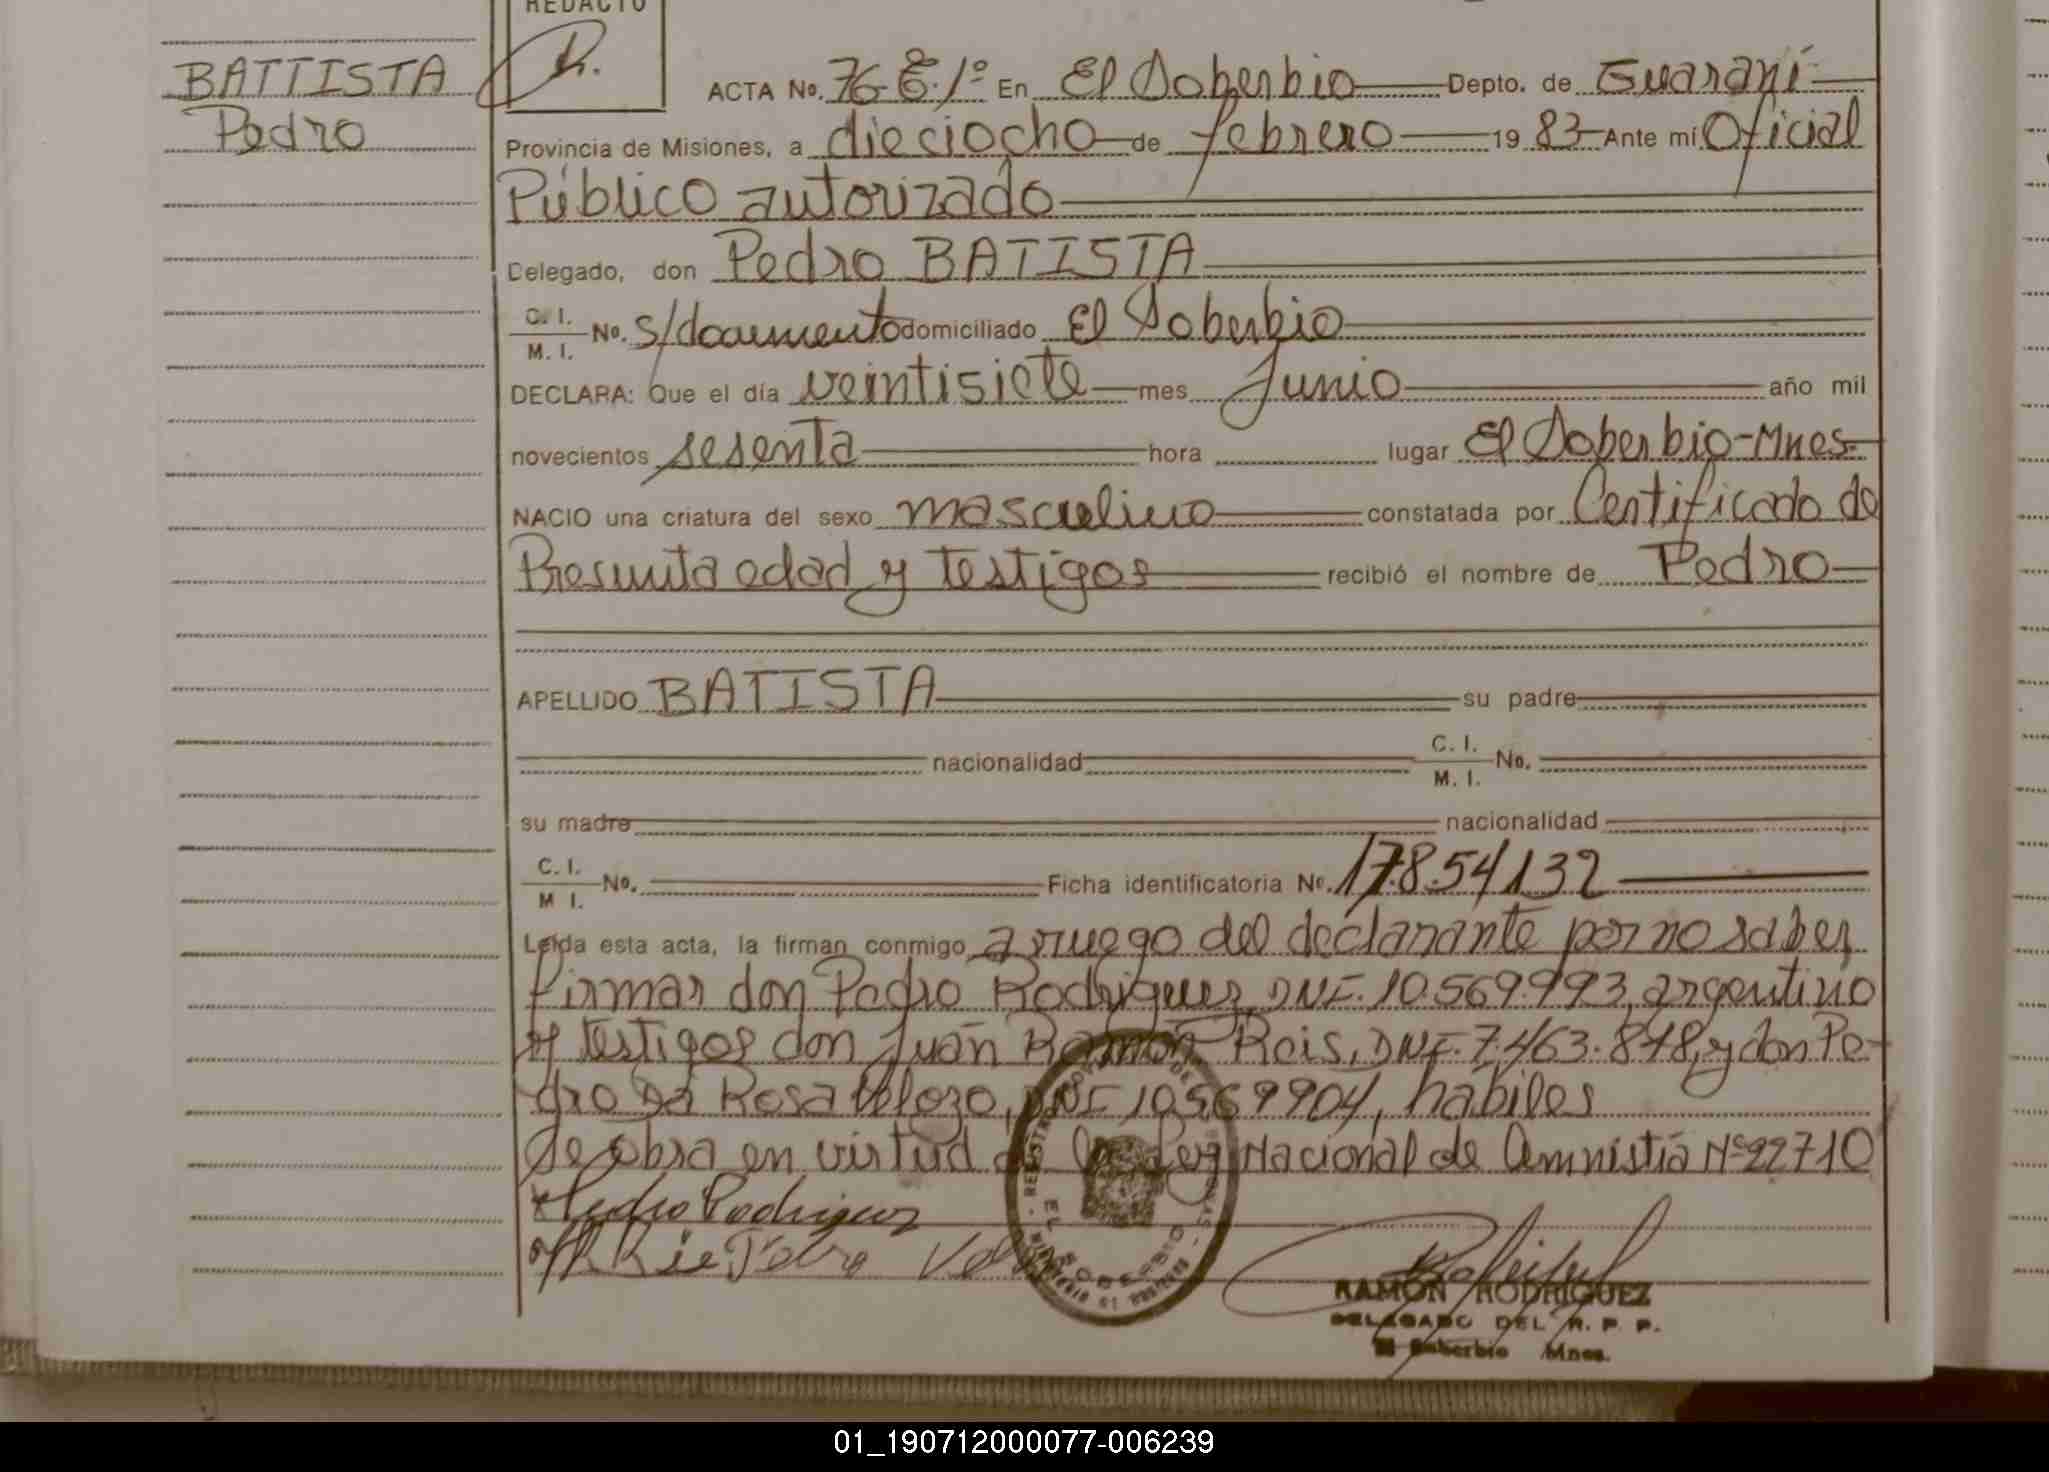 REDACTO
BATTISTA
Pedro
ACTA No. 76 E. 1º En El Soberbio Depto. de Guaraní
Provincia de Misiones, a dieciocho de febrero 1983 Ante mí Oficial
Público autorizado
Delegado, don Pedro BATISTA
C. I. M. I. No. s/documento domiciliado El Soberbio
DECLARA: Que el día veintisiete mes Junio año mil
novecientos sesenta hora lugar El Soberbio-Mnes.
NACIO una criatura del sexo masculino constatada por Certificado de
Presunta edad y testigos recibió el nombre de Pedro
APELLIDO BATISTA su padre
nacionalidad C. I. M. I. No.
su madre nacionalidad
C. I. M I. No. Ficha identificatoria No. 17.854132
Leída esta acta, la firman conmigo a ruego del declarante por no saber
firmar don Pedro Rodriguez, DNI. 10.569.993, argentino
y testigos don Juan Ramón Reis, DNI. 7.463.848, y don Pe-
dro Da Rosa Velozo, DNI 10569904, habiles
Se obra en virtud de la Ley Nacional de Amnistía Nº 22710
Pedro Rodriguez
Pedro
REGISTRO PROVINCIAL DE LAS PERSONAS
EL SOBERBIO
RAMON RODRIGUEZ
DELEGADO DEL R. P. P.
El Soberbio Mnes.
01_190712000077-006239